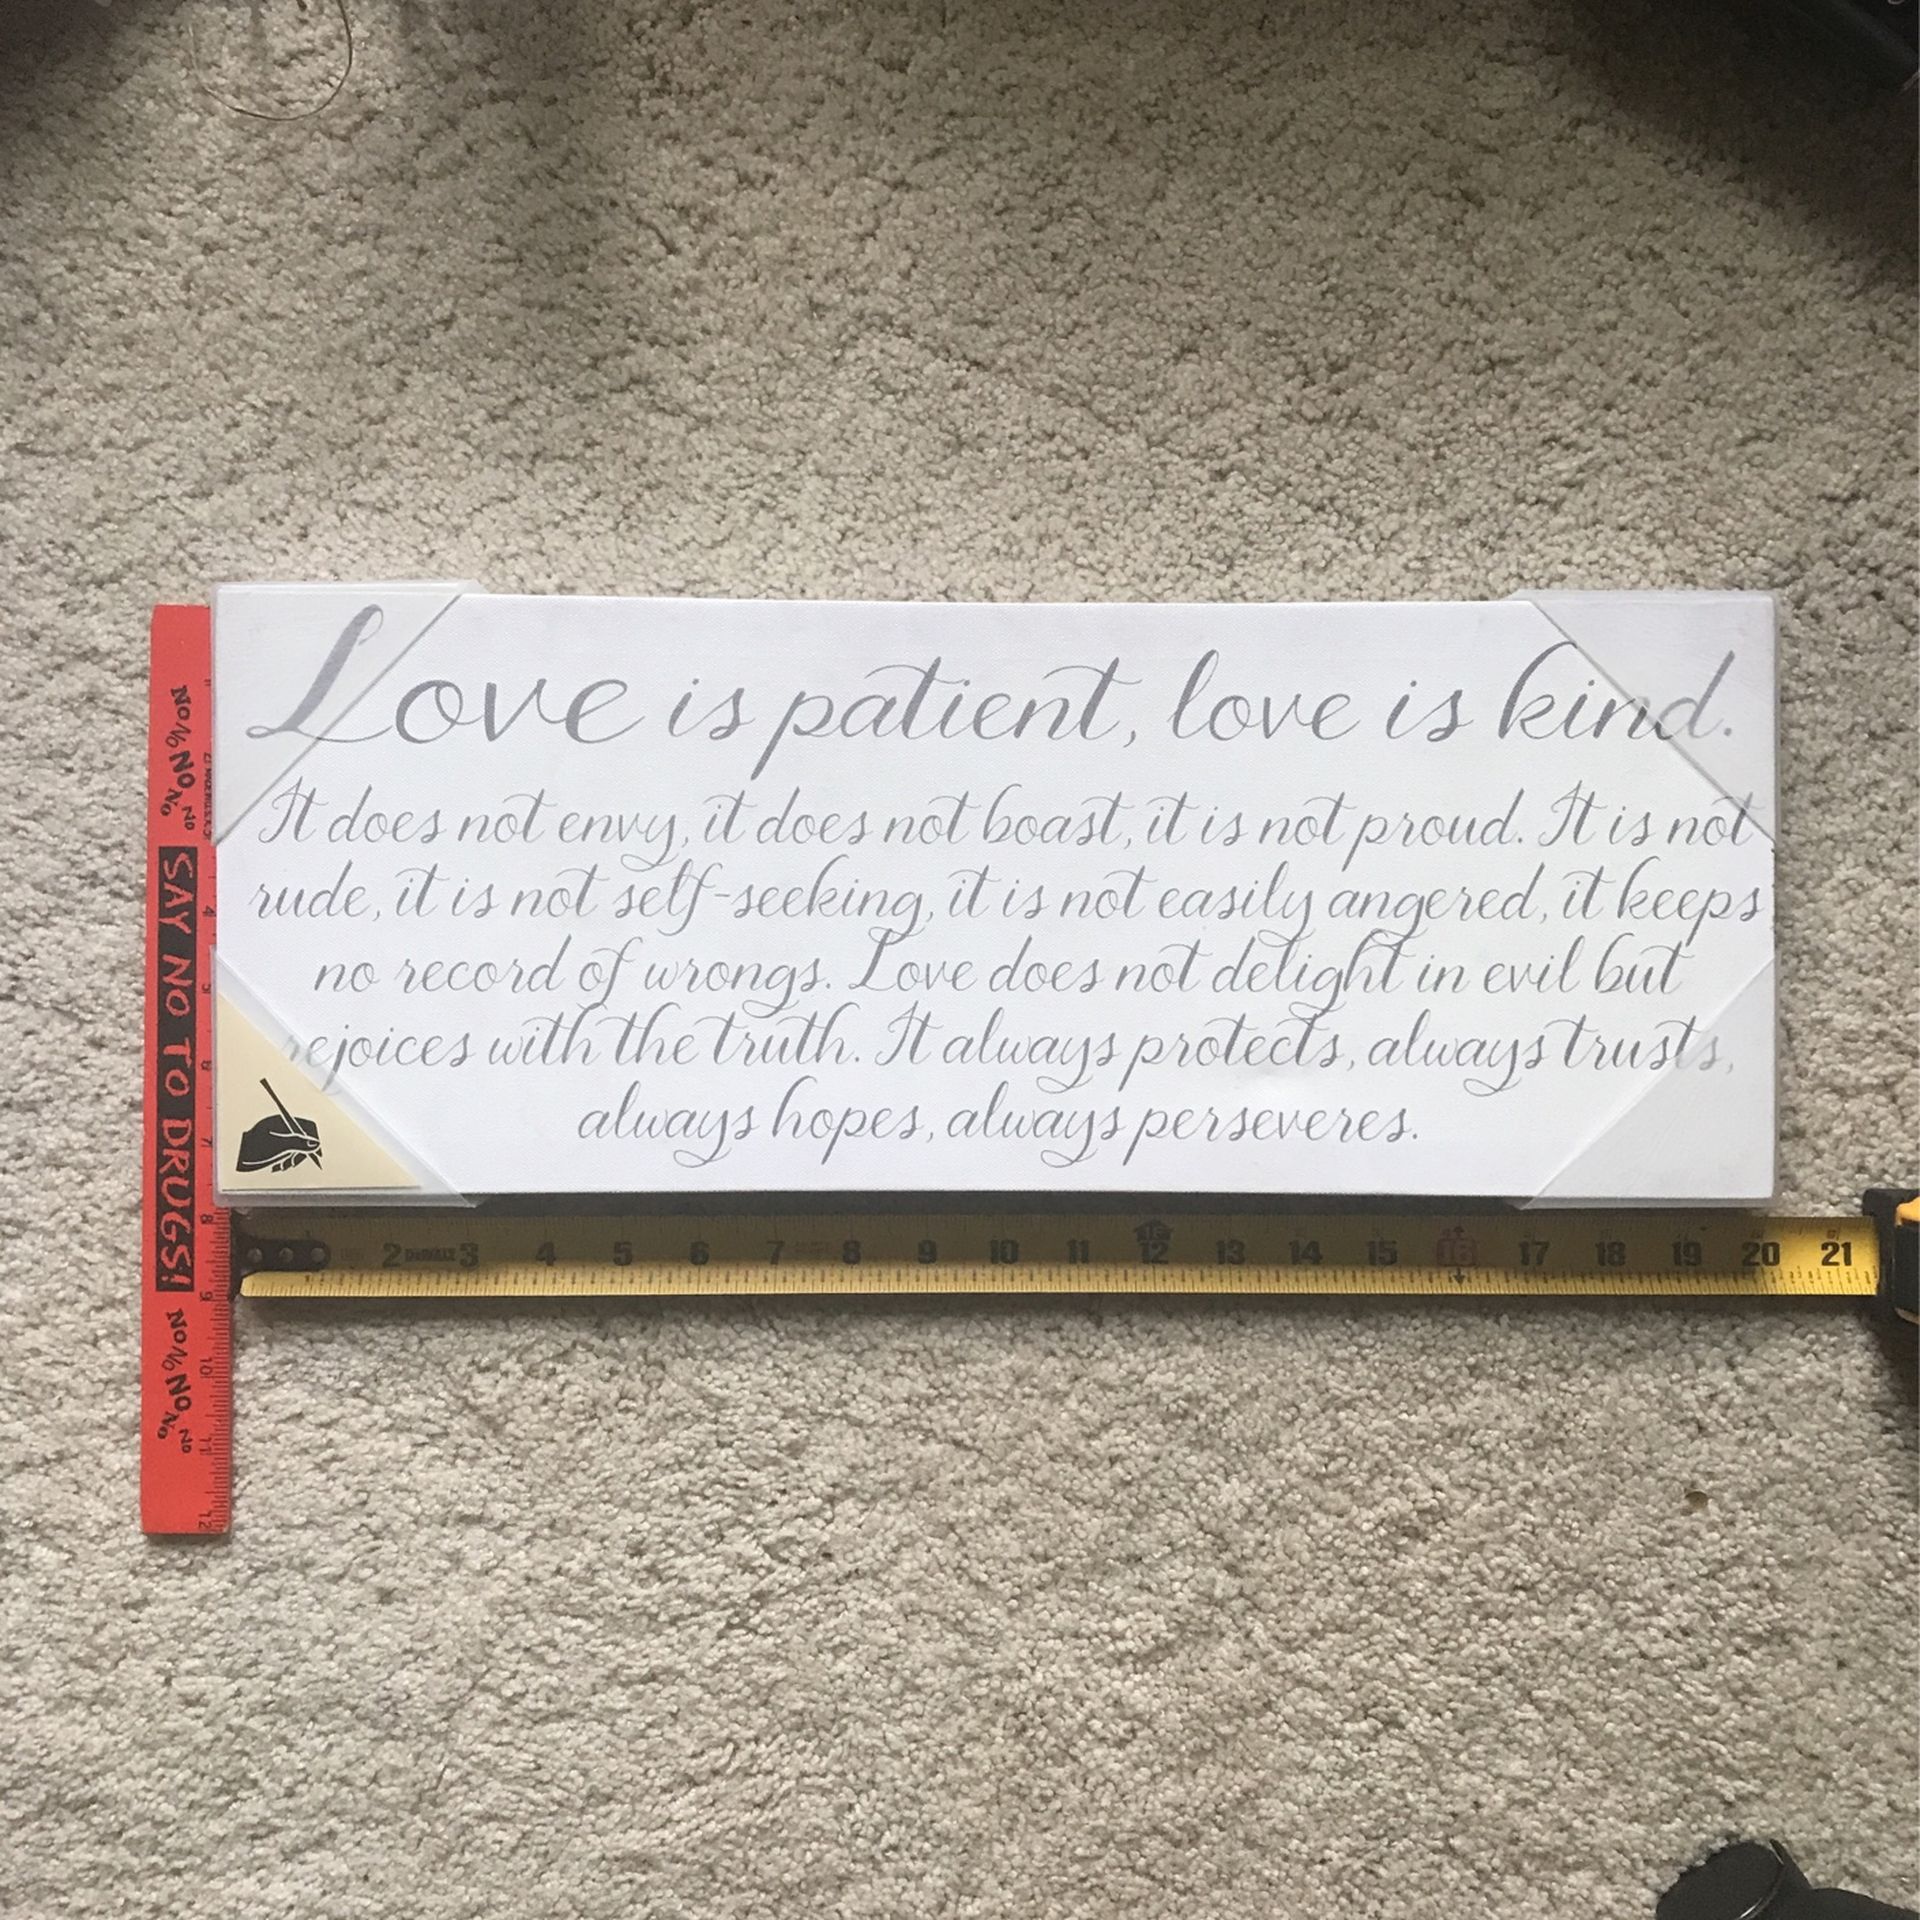 Love is patient, love is kind.
It does not envy, it does not boast, it is not proud. It is not
rude, it is not self-seeking, it is not easily angered, it keeps
no record of wrongs. Love does not delight in evil but
rejoices with the truth. It always protects, always trusts,
always hopes, always perseveres.
NO NO NO NO NO
SAY NO TO DRUGS!
NO NO NO NO NO
4 5 6 7 8 9 10 11 12
2 DEWALT 3 4 5 6 7 8 9 10 11 12 13 14 15 16 17 18 19 20 21